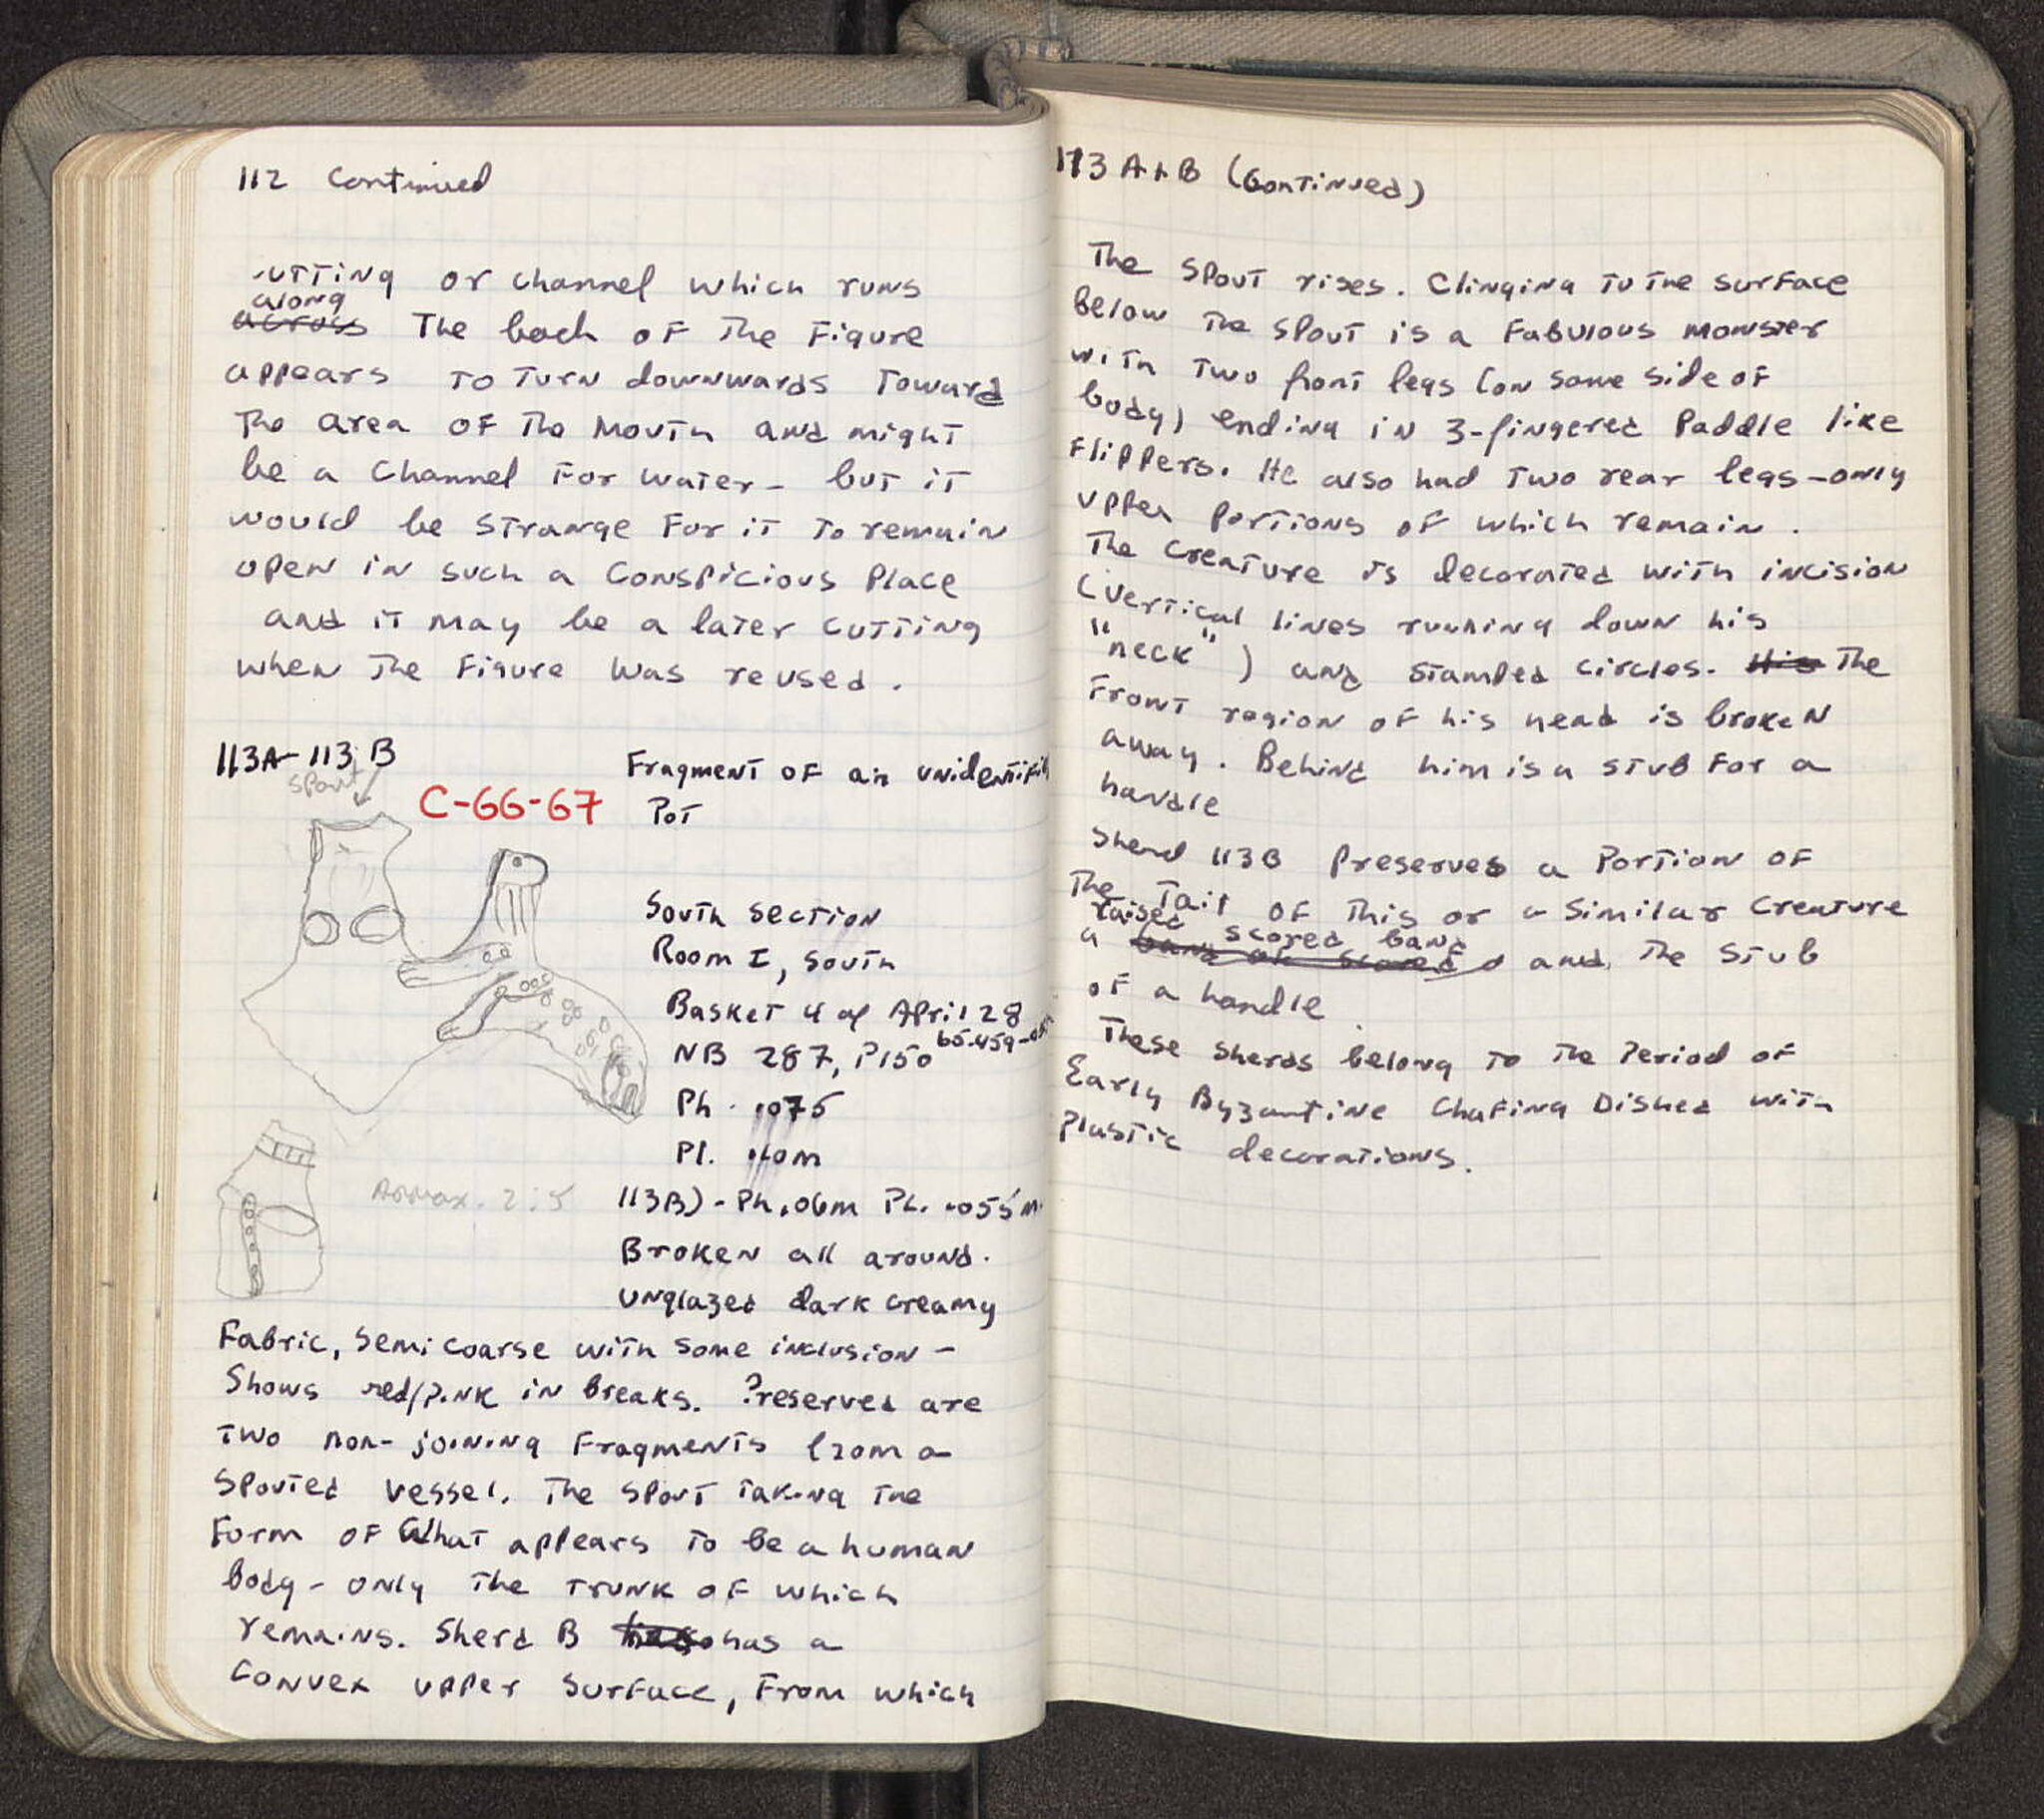 112 Continued
cutting or channel which runs
along
across The back of The Figure
appears To Turn downwards Toward
The area of The Mouth and might
be a Channel For water - but it
would be strange For it To remain
open in such a Conspicious Place
and it may be a later cutting
when The Figure was reused.
113A-113B
spout
C-66-67
Fragment of an unidentified
Pot
South section
Room I, South
Basket 4 of April 28
NB 287, P150
Ph. .075
Pl. .10m
Approx. 2:5
113B) - Ph. .06m PL. .055m.
Broken all around.
Unglazed dark creamy
Fabric, semi coarse with some inclusion -
Shows red/pink in breaks. Preserved are
Two non-joining Fragments from a
Spouted vessel. The spout Taking The
Form of What appears To be a human
body - only The Trunk of which
remains. Sherd B has a
Convex upper surface, From which
113 A+B (Continued)
The spout rises. Clinging To The surface
below The spout is a Fabulous monster
with Two front legs (on same side of
body) ending in 3-fingered Paddle like
Flippers. He also had Two rear legs - only
upper portions of which remain.
The Creature is decorated with incision
(vertical lines running down his
"neck") and stamped circles. His The
Front region of his head is broken
away. Behind him is a stub For a
handle
Sherd 113B Preserves a Portion of
The Tail of This or a Similar Creature
raised scored band
a band of scored and The Stub
of a handle
These sherds belong To The Period of
Early Byzantine Chafing Dishes with
Plastic decorations.